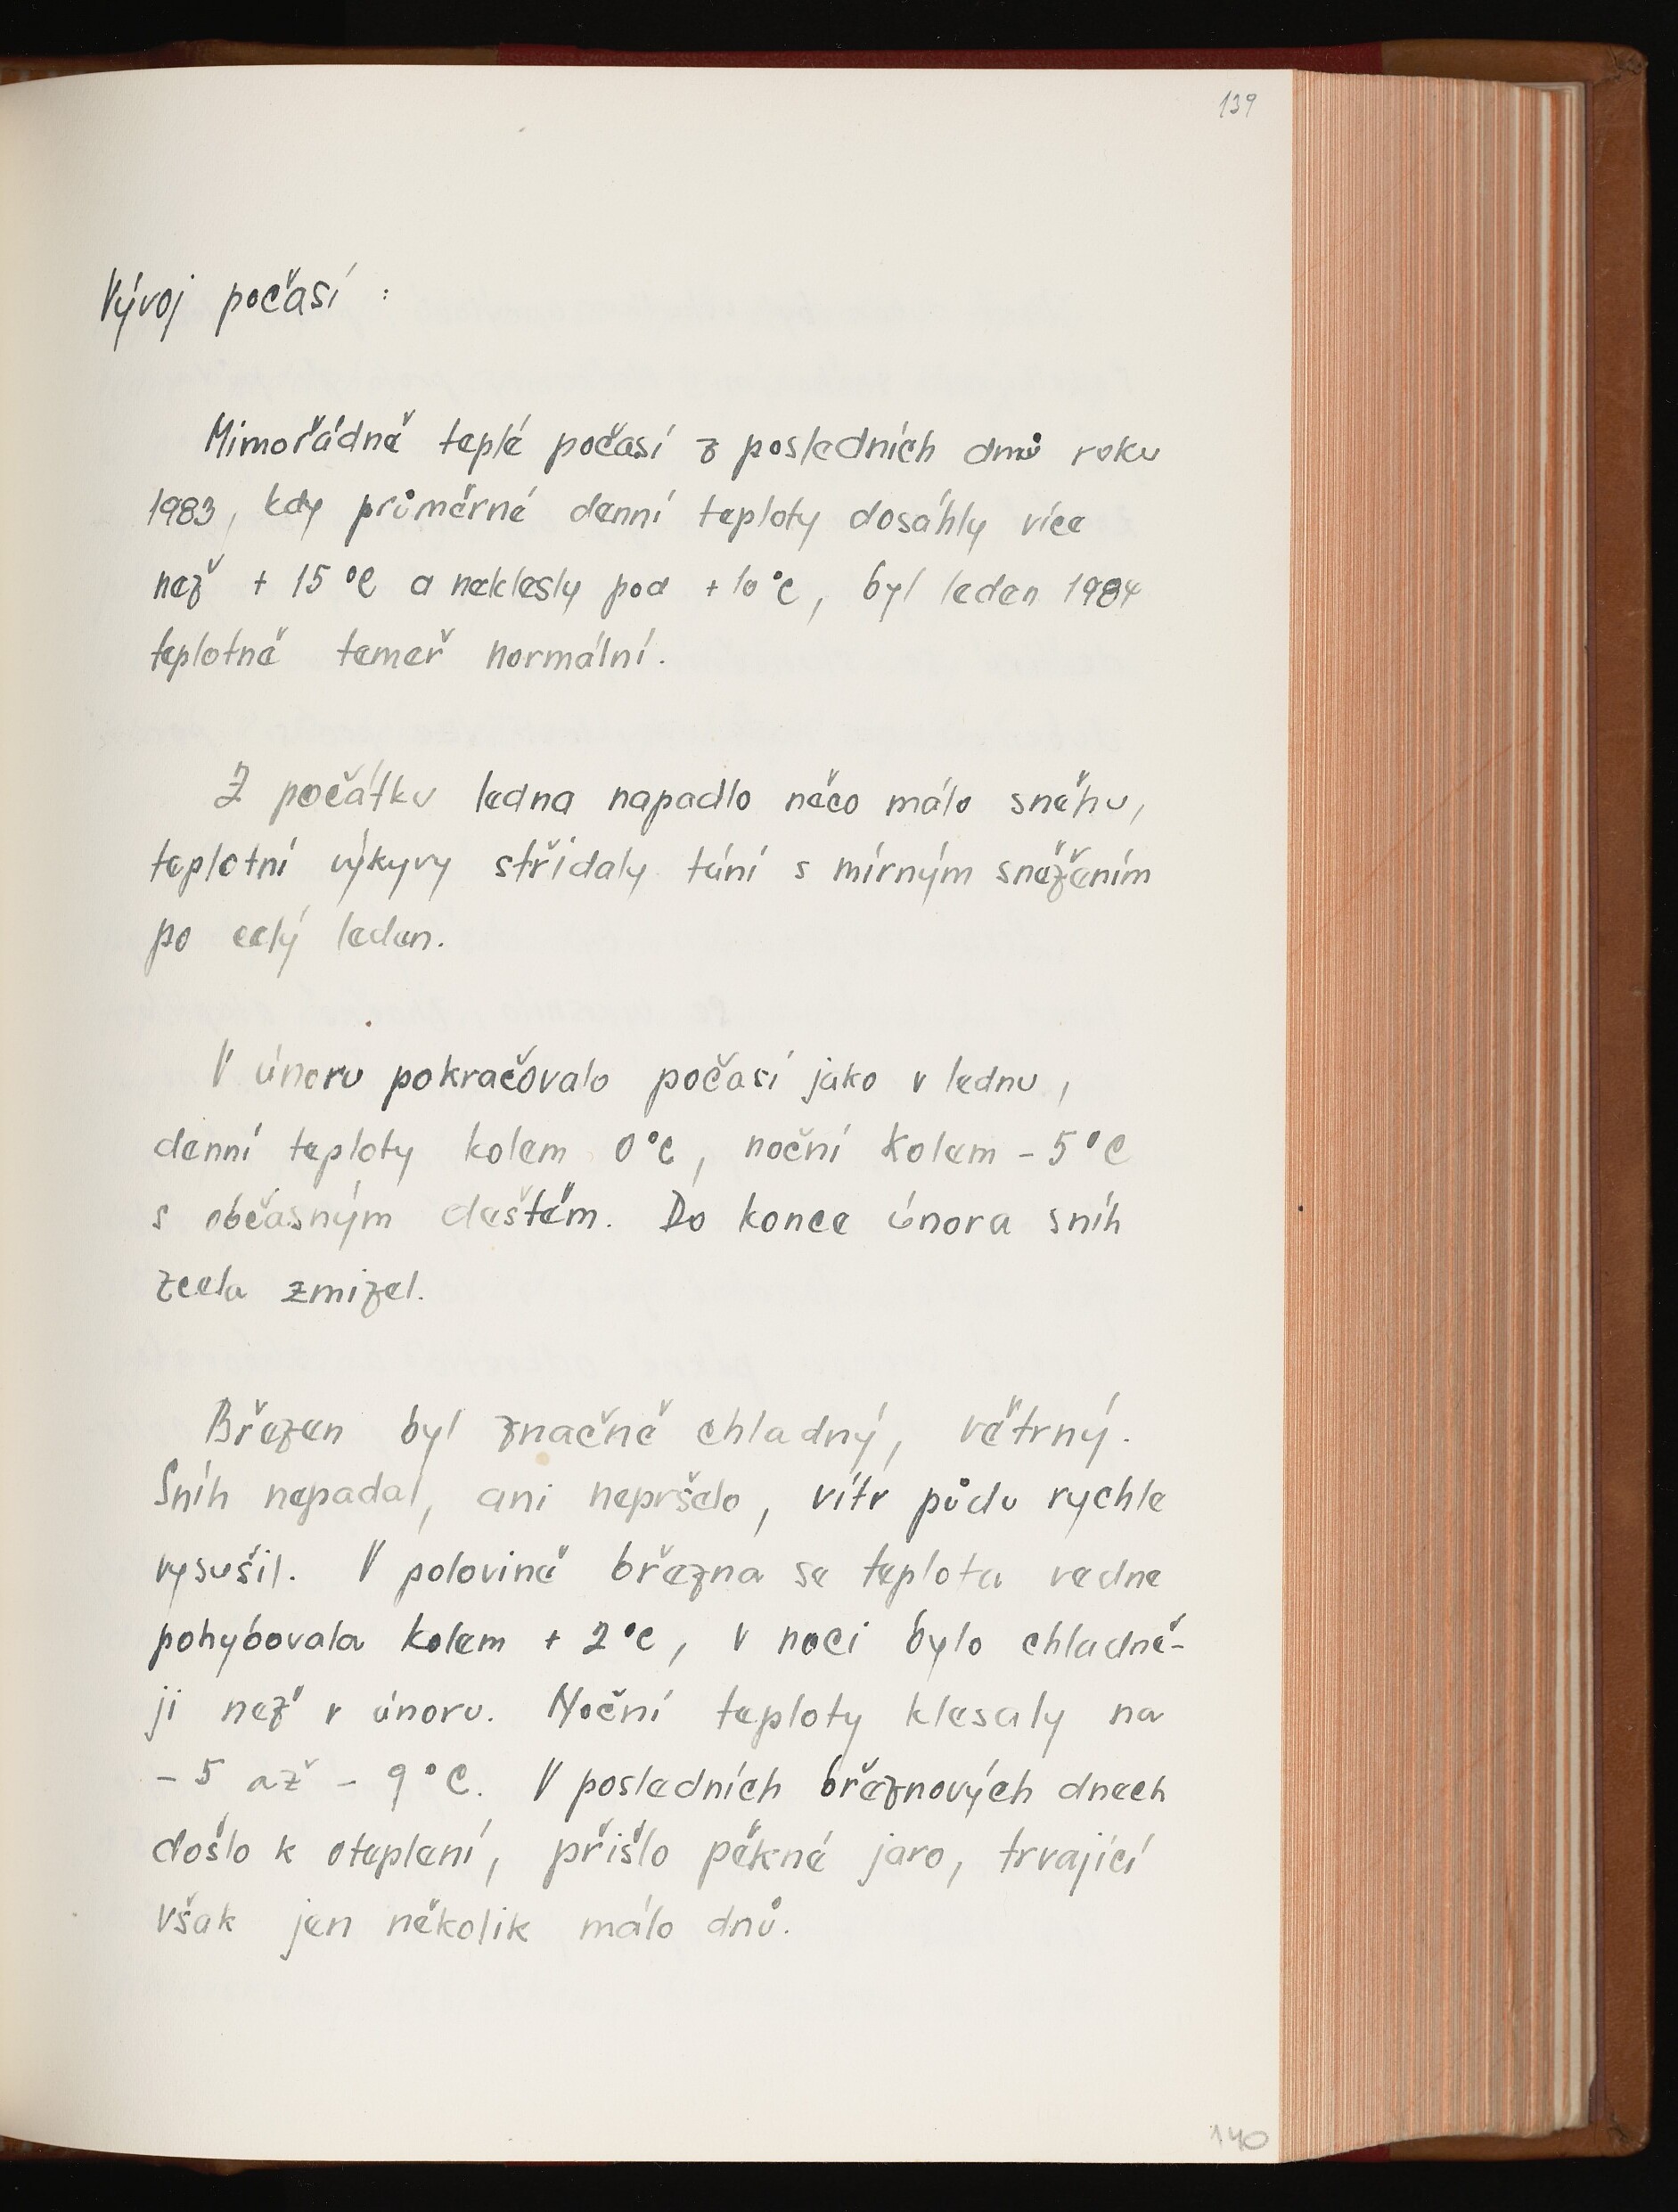 139
Vývoj počasí :
Mimořádně teplé počasí z posledních dnů roku
1983, kdy průměrné denní teploty dosáhly více
než + 15 °C a neklesly pod + 10 °C, byl leden 1984
teplotně temeř normální.
Z počátku ledna napadlo něco málo sněhu,
teplotní výkyvy střídaly tání s mírným sněžením
po celý leden.
V únoru pokračovalo počasí jako v lednu,
denní teploty kolem 0 °C, noční kolem - 5 °C
s občasným deštěm. Do konce února sníh
zcela zmizel.
Březen byl značně chladný, větrný.
Sníh nepadal, ani nepršelo, vítr půdu rychle
vysušil. V polovině března se teplota vedne
pohybovala kolem + 2 °C, v noci bylo chladně-
ji než v únoru. Noční teploty klesaly na
- 5 až - 9 °C. V posledních březnových dnech
došlo k oteplení, přišlo pěkné jaro, trvající
však jen několik málo dnů.
140